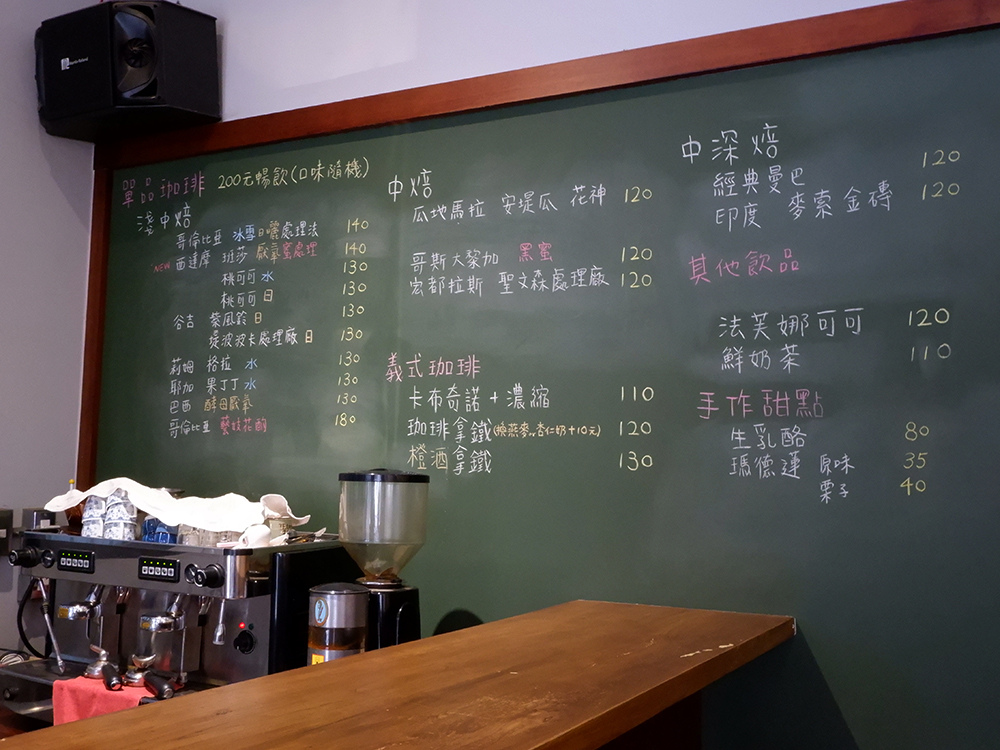 單品珈琲 200元暢飲(口味隨機)
淺中焙
哥倫比亞 冰雪日曬處理法 140
NEW 西達摩 班莎 厭氧蜜處理 140
桃可可 水 130
桃可可 日 130
谷吉 紫風鈴 日 130
堤波波卡處理廠 日 130
莉姆 格拉 水 130
耶加 果丁丁 水 130
巴西 酵母厭氧 130
哥倫比亞 藝妓花酌 180
中焙
瓜地馬拉 安堤瓜 花神 120
哥斯大黎加 黑蜜 120
宏都拉斯 聖文森處理廠 120
義式珈琲
卡布奇諾+濃縮 110
珈琲拿鐵(換燕麥杏仁奶+10元) 120
橙酒拿鐵 130
中深焙
經典曼巴 120
印度 麥索金磚 120
其他飲品
法芙娜可可 120
鮮奶茶 110
手作甜點
生乳酪 80
瑪德蓮 原味 35
栗子 40